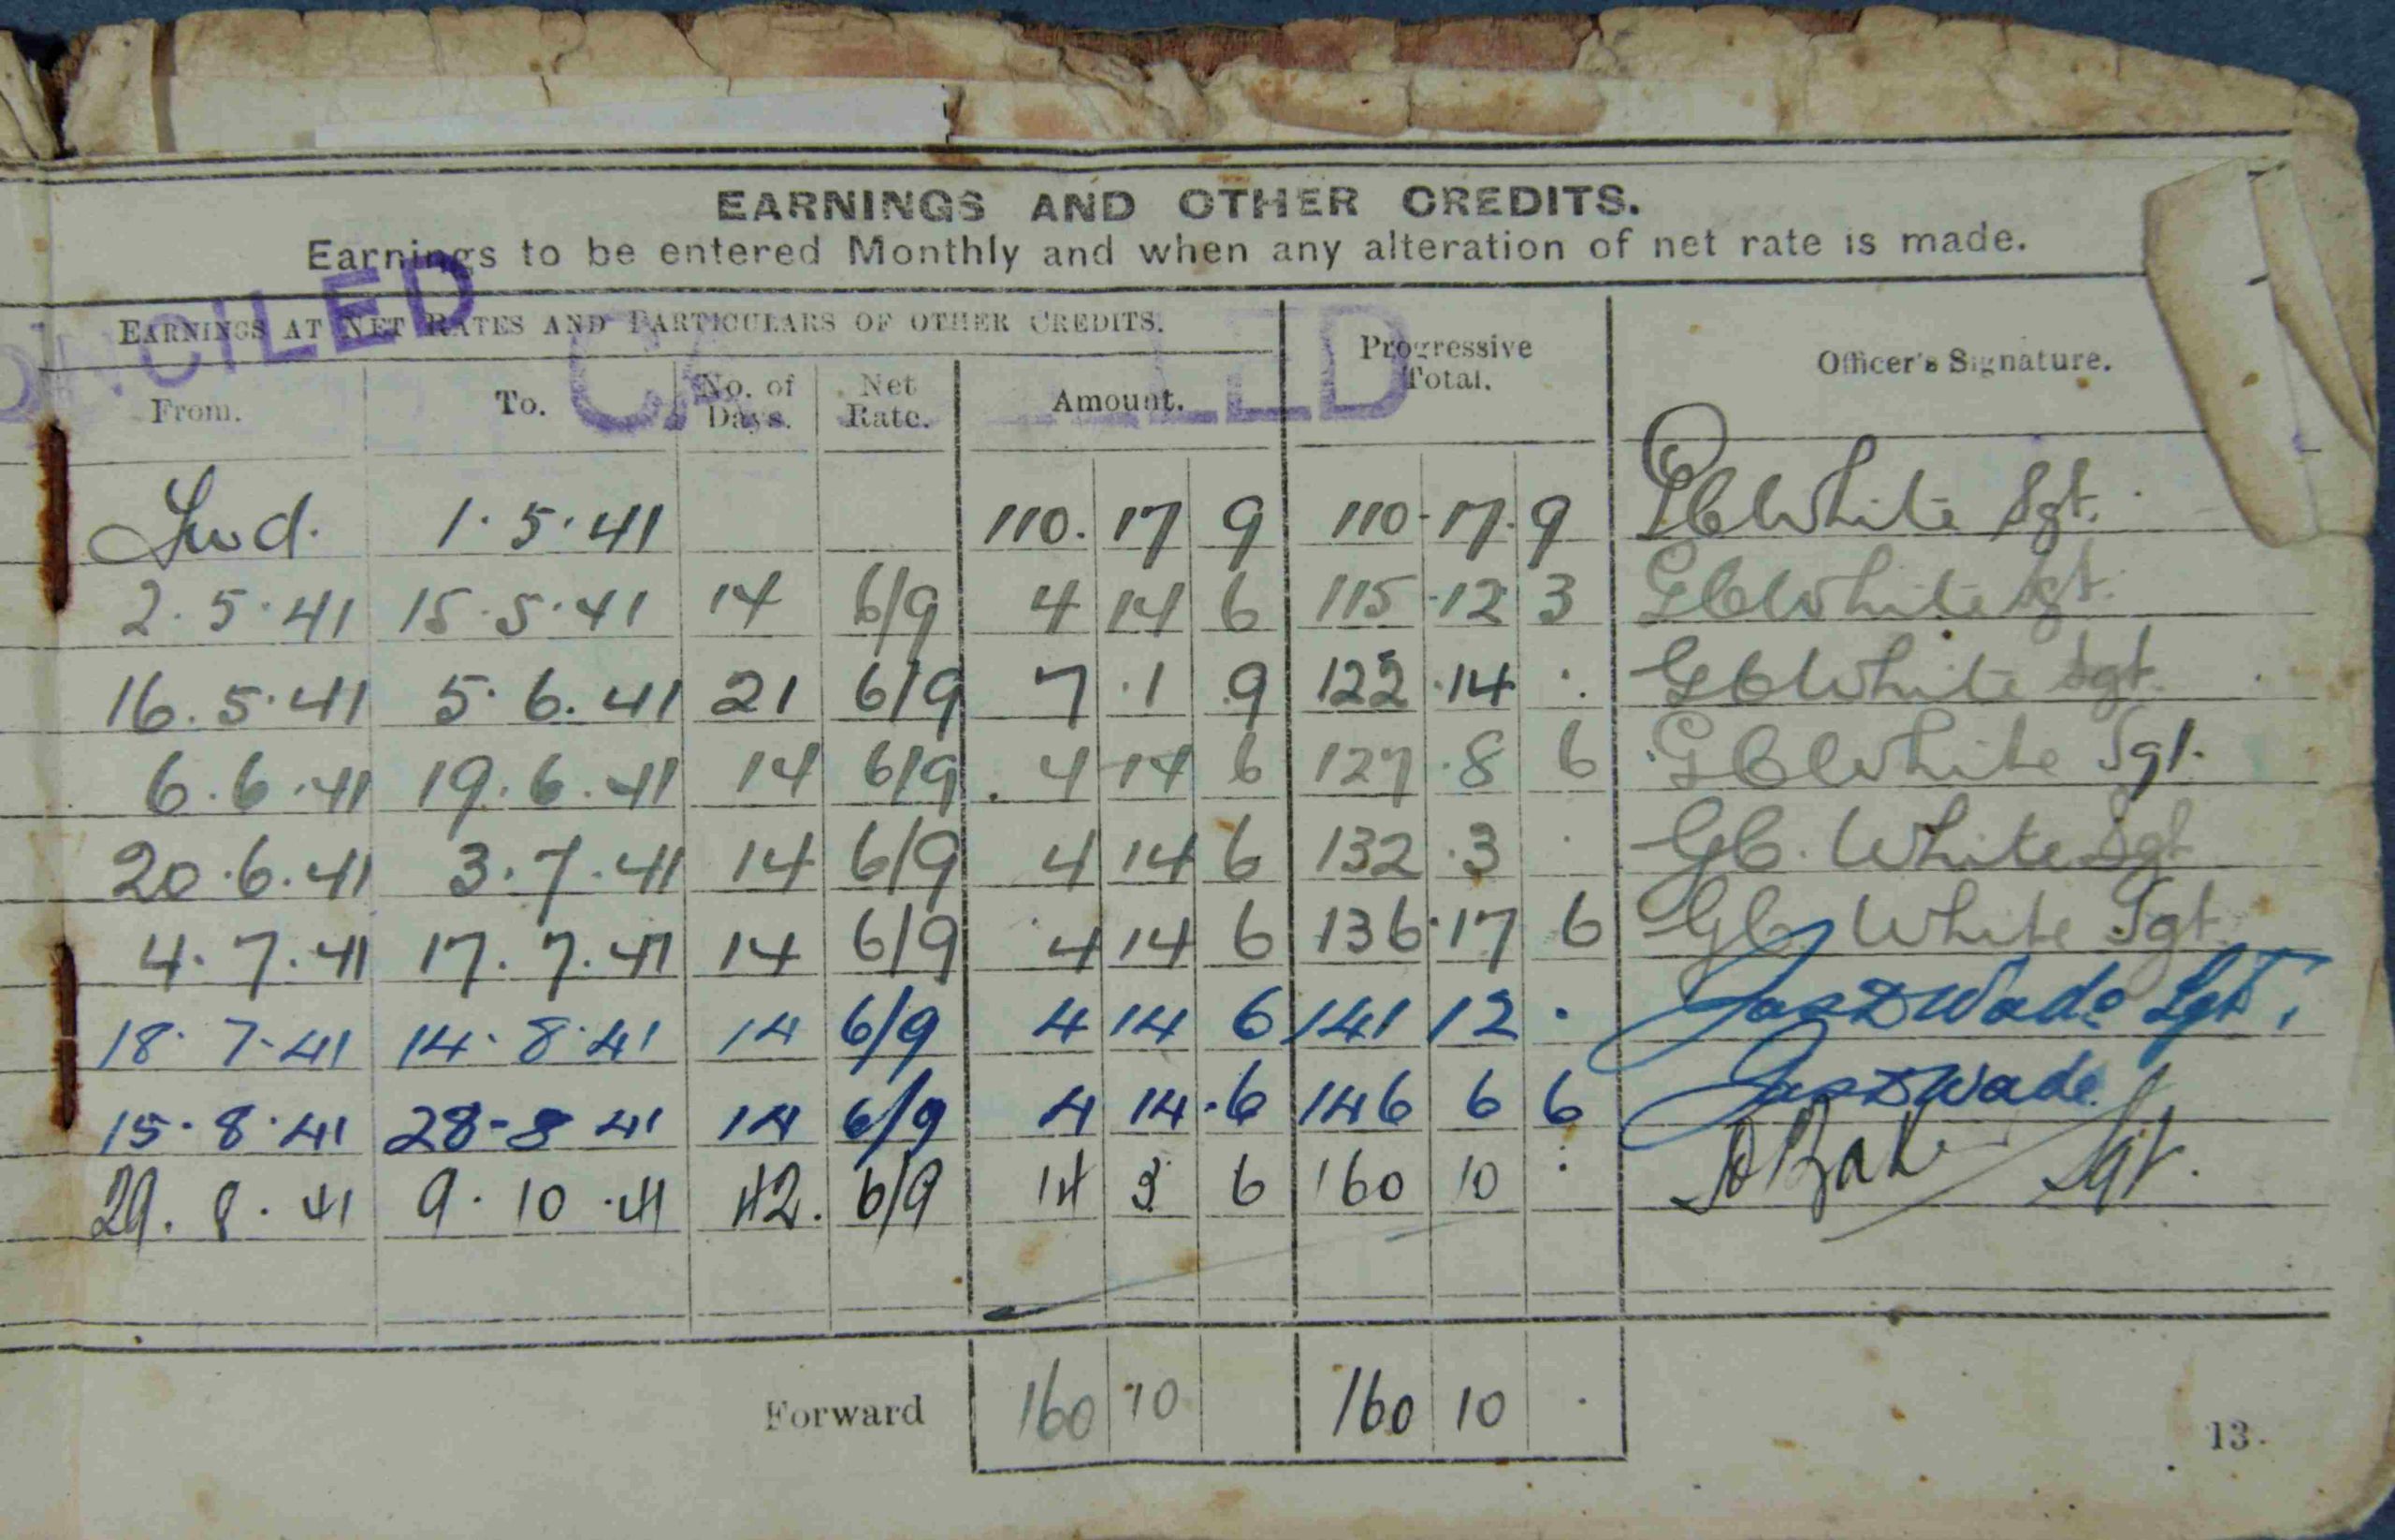 EARNINGS AND OTHER CREDITS.
Earnings to be entered Monthly and when any alteration of net rate is made.
ONCILED
EARNINGS AT NET RATES AND PARTICULARS OF OTHER CREDITS.
Progressive Total.
Officer's Signature.
From. To. No. of Days. Net Rate. Amount.
Fwd. 1.5.41 110. 17 9 110-17-9 GC White Sgt.
2.5.41 15.5.41 14 6/9 4 14 6 115 .12 3 GC White Sgt.
16.5.41 5.6.41 21 6/9 7 .1 9 122 .14 . GC White Sgt.
6.6.41 19.6.41 14 6/9 4 14 6 127 .8 6 GC White Sgt.
20.6.41 3.7.41 14 6/9 4 14 6 132 .3 . GC. White Sgt
4.7.41 17.7.41 14 6/9 4 14 6 136.17 6 GC. White Sgt
18.7.41 14.8.41 14 6/9 4 14 6 141 12 . Jas D Wade Sgt.
15.8.41 28-8 41 14 6/9 4 14.6 146 6 6 Jas D Wade
29.8.41 9.10.41 42. 6/9 14 3 6 160 10 : Sgt.
Forward 160 10 160 10 .
13.